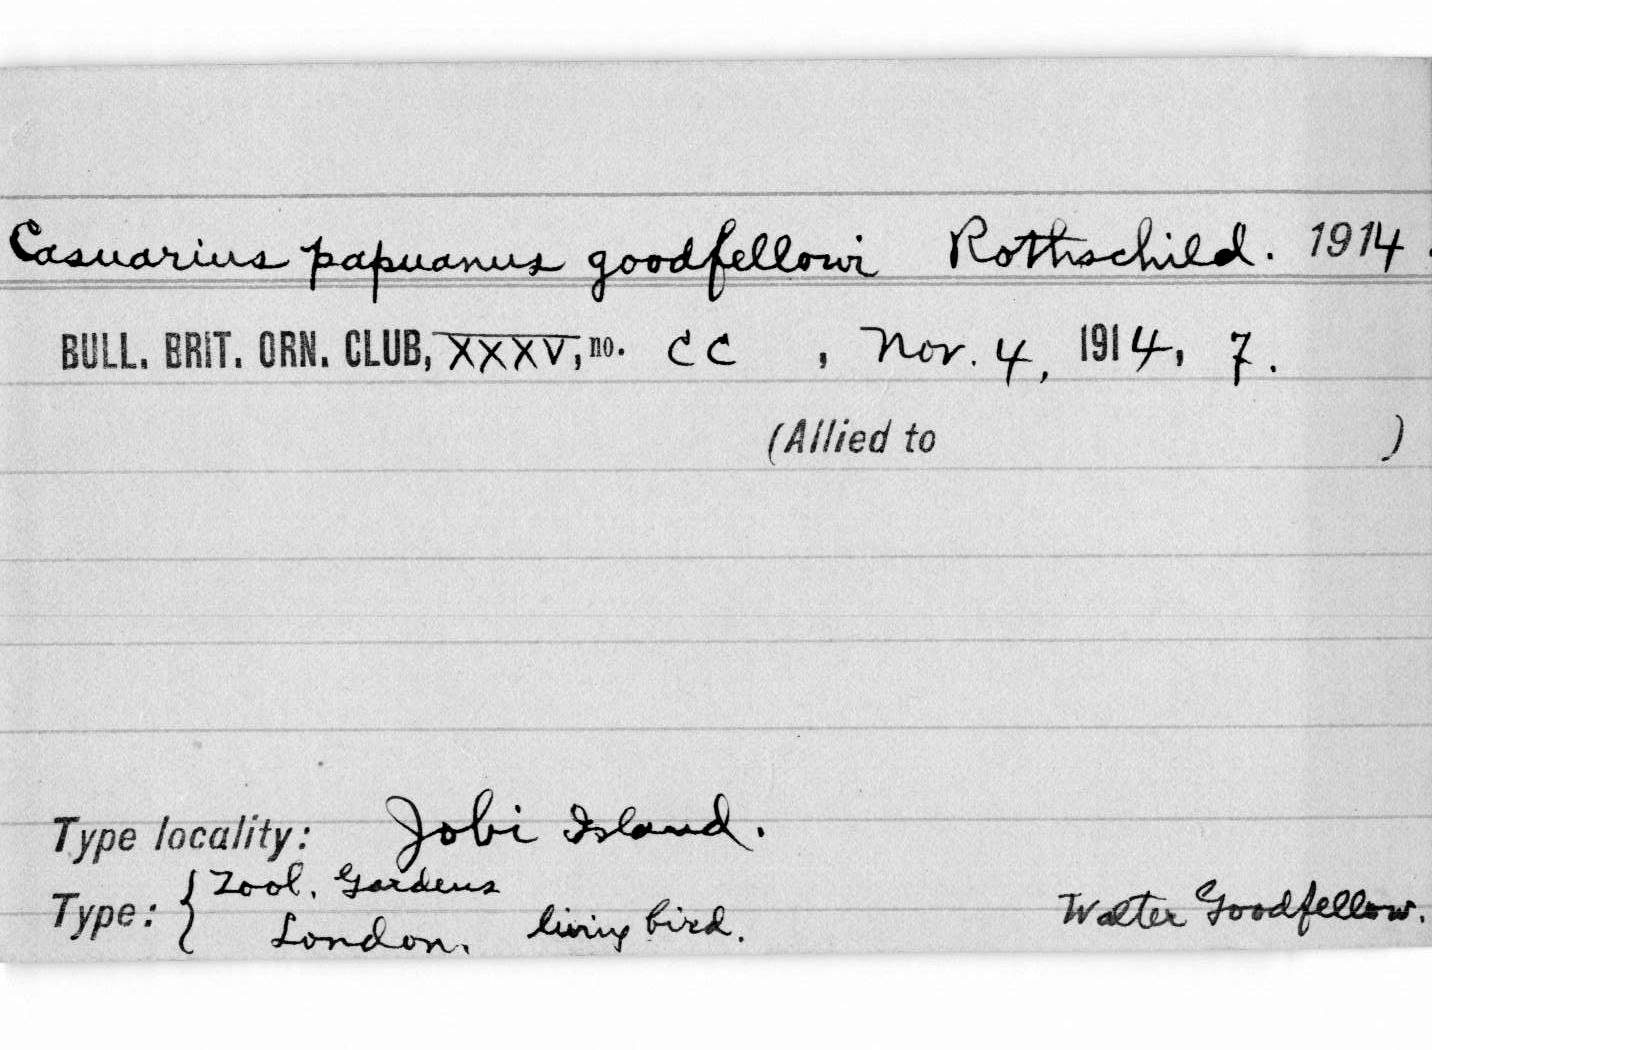 Casuarius papuanus goodfellowi Rothschild. 1914.
BULL. BRIT. ORN. CLUB, XXXV, no. CC , Nov. 4, 1914, 7.
(Allied to )
Type locality: Jobi Island.
Type: { Zool. Gardens
London. living bird. Walter Goodfellow.